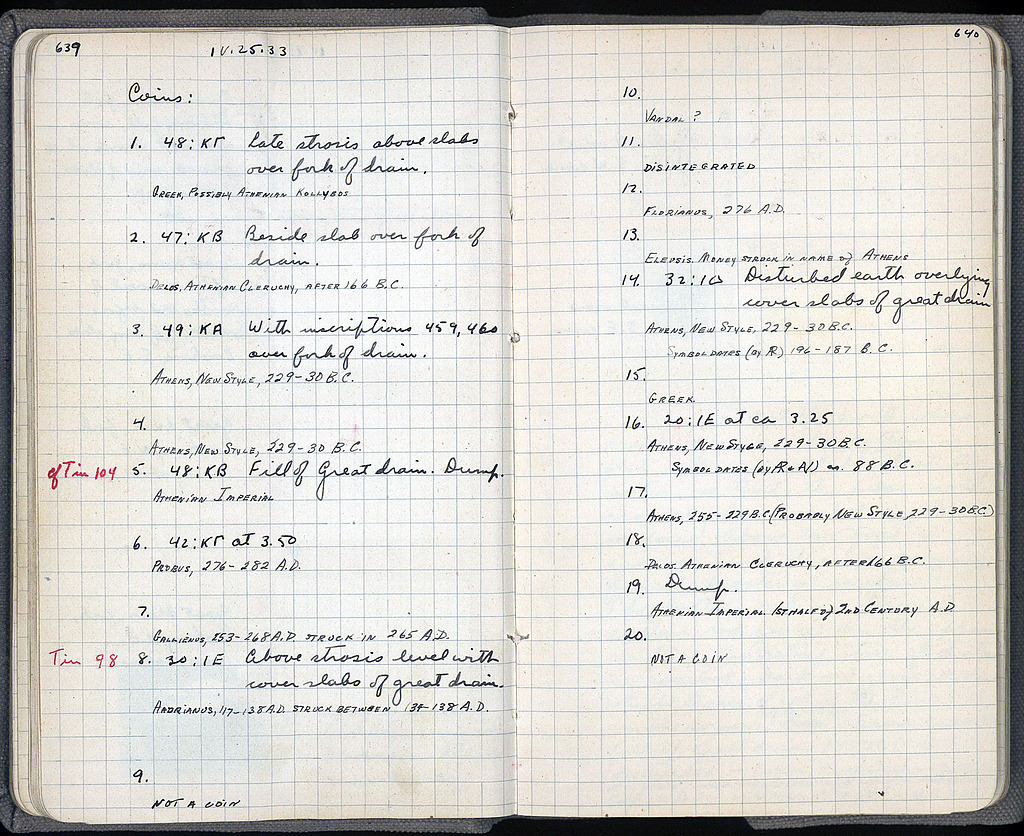 639
IV.25.33
Coins:
1. 48:ΚΓ Late strosis above slabs
over fork of drain.
GREEK, POSSIBLY ATHENIAN KOLLYBOS
2. 47:ΚΒ Beside slab over fork of
drain.
DELOS, ATHENIAN CLERUCHY, AFTER 166 B.C.
3. 49:ΚΑ With inscriptions 459, 460
over fork of drain.
ATHENS, NEW STYLE, 229-30 B.C.
4.
ATHENS, NEW STYLE, 229-30 B.C.
cf Tin 104 5. 48:ΚΒ Fill of Great drain. Dump.
ATHENIAN IMPERIAL
6. 42:ΚΓ at 3.50
PROBUS, 276-282 A.D.
7.
GALLIENUS, 253-268 A.D. STRUCK IN 265 A.D.
Tin 98 8. 30:ΙΕ Above strosis level with
cover slabs of great drain.
HADRIANUS, 117-138 A.D. STRUCK BETWEEN 134-138 A.D.
9.
NOT A COIN
640
10.
VANDAL ?
11.
DISINTEGRATED
12.
FLORIANUS, 276 A.D.
13.
ELEUSIS. MONEY STRUCK IN NAME of ATHENS
14. 32:ΙΔ Disturbed earth overlying
cover slabs of great drain
ATHENS, NEW STYLE, 229-30 B.C.
SYMBOL DATES (by Æ) 196-187 B.C.
15.
GREEK
16. 20:ΙΕ at ca 3.25
ATHENS, NEW STYLE, 229-30 B.C.
SYMBOL DATES (by Æ & AV) ca. 88 B.C.
17.
ATHENS, 255-229 B.C. (PROBABLY NEW STYLE, 229-30 B.C.)
18.
DELOS ATHENIAN CLERUCHY, AFTER 166 B.C.
19. Dump.
ATHENIAN IMPERIAL 1ST HALF of 2ND CENTURY A.D
20.
NOT A COIN